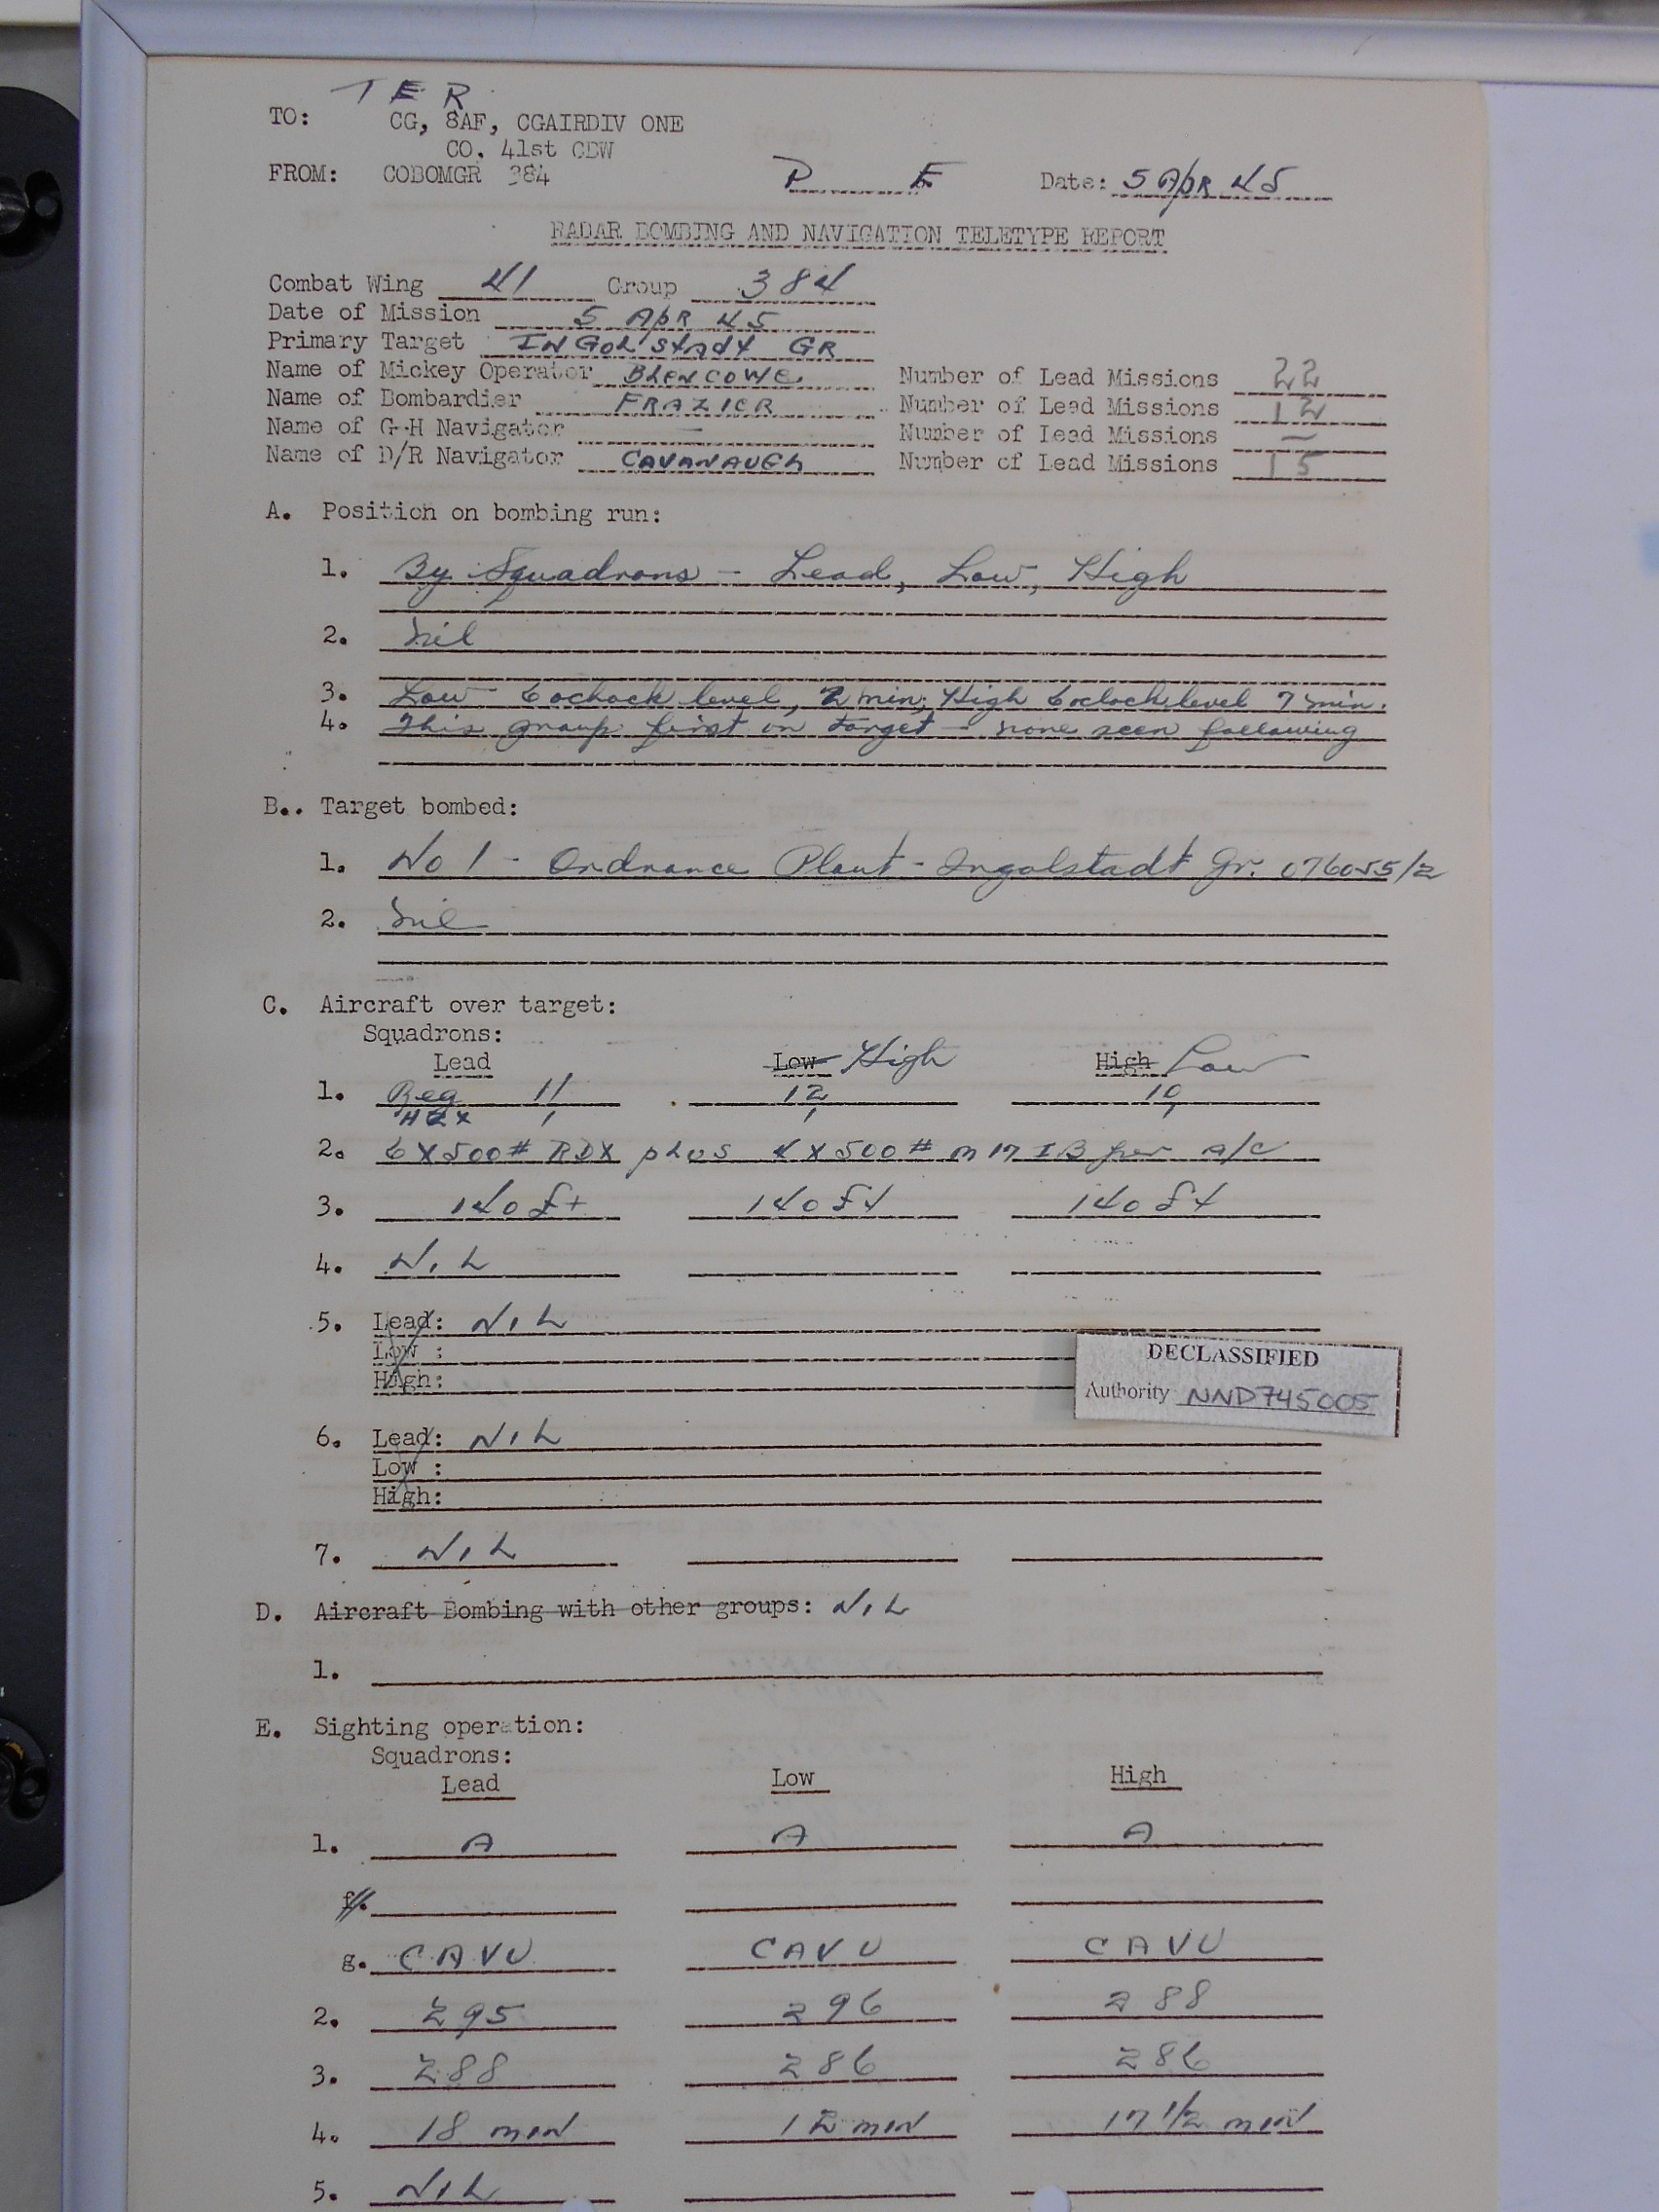 T E R
TO: CG, 8AF, CGAIRDIV ONE
CO, 41st CBW
FROM: COBOMGR 384 P E Date: 5 Apr 45
RADAR BOMBING AND NAVIGATION TELETYPE REPORT
Combat Wing 41 Group 384
Date of Mission 5 Apr 45
Primary Target INGOLSTADT GR
Name of Mickey Operator BLENCOWE Number of Lead Missions 22
Name of Bombardier FRAZIER Number of Lead Missions 12
Name of G-H Navigator — Number of Lead Missions —
Name of D/R Navigator CAVANAUGH Number of Lead Missions 15
A. Position on bombing run:
1. By Squadrons - Lead, Low, High
2. Nil
3. Low 6 ochock level, 2 min; High 6oclock level 7 min.
4. This group first on target - none seen following
B.. Target bombed:
1. No 1 - Ordnance Plant - Ingolstadt Gr. 076055/2
2. Nil
C. Aircraft over target:
Squadrons:
Lead Low High High Low
1. Reg 11 12 10
H2X 1 1 1
2. 6 X 500# RDX plus 4 X 500# M17 IB per A/C
3. 140 ft 140 ft 140 ft
4. NIL
5. Lead: NIL
Low :
High:
DECLASSIFIED
Authority NND745005
6. Lead: NIL
Low :
High:
7. NIL
D. Aircraft Bombing with other groups: NIL
1.
E. Sighting operation:
Squadrons:
Lead Low High
1. A A A
f.
g. CAVU CAVU CAVU
2. 295 296 288
3. 288 286 286
4. 18 min 12 min 17 1/2 min
5. NIL